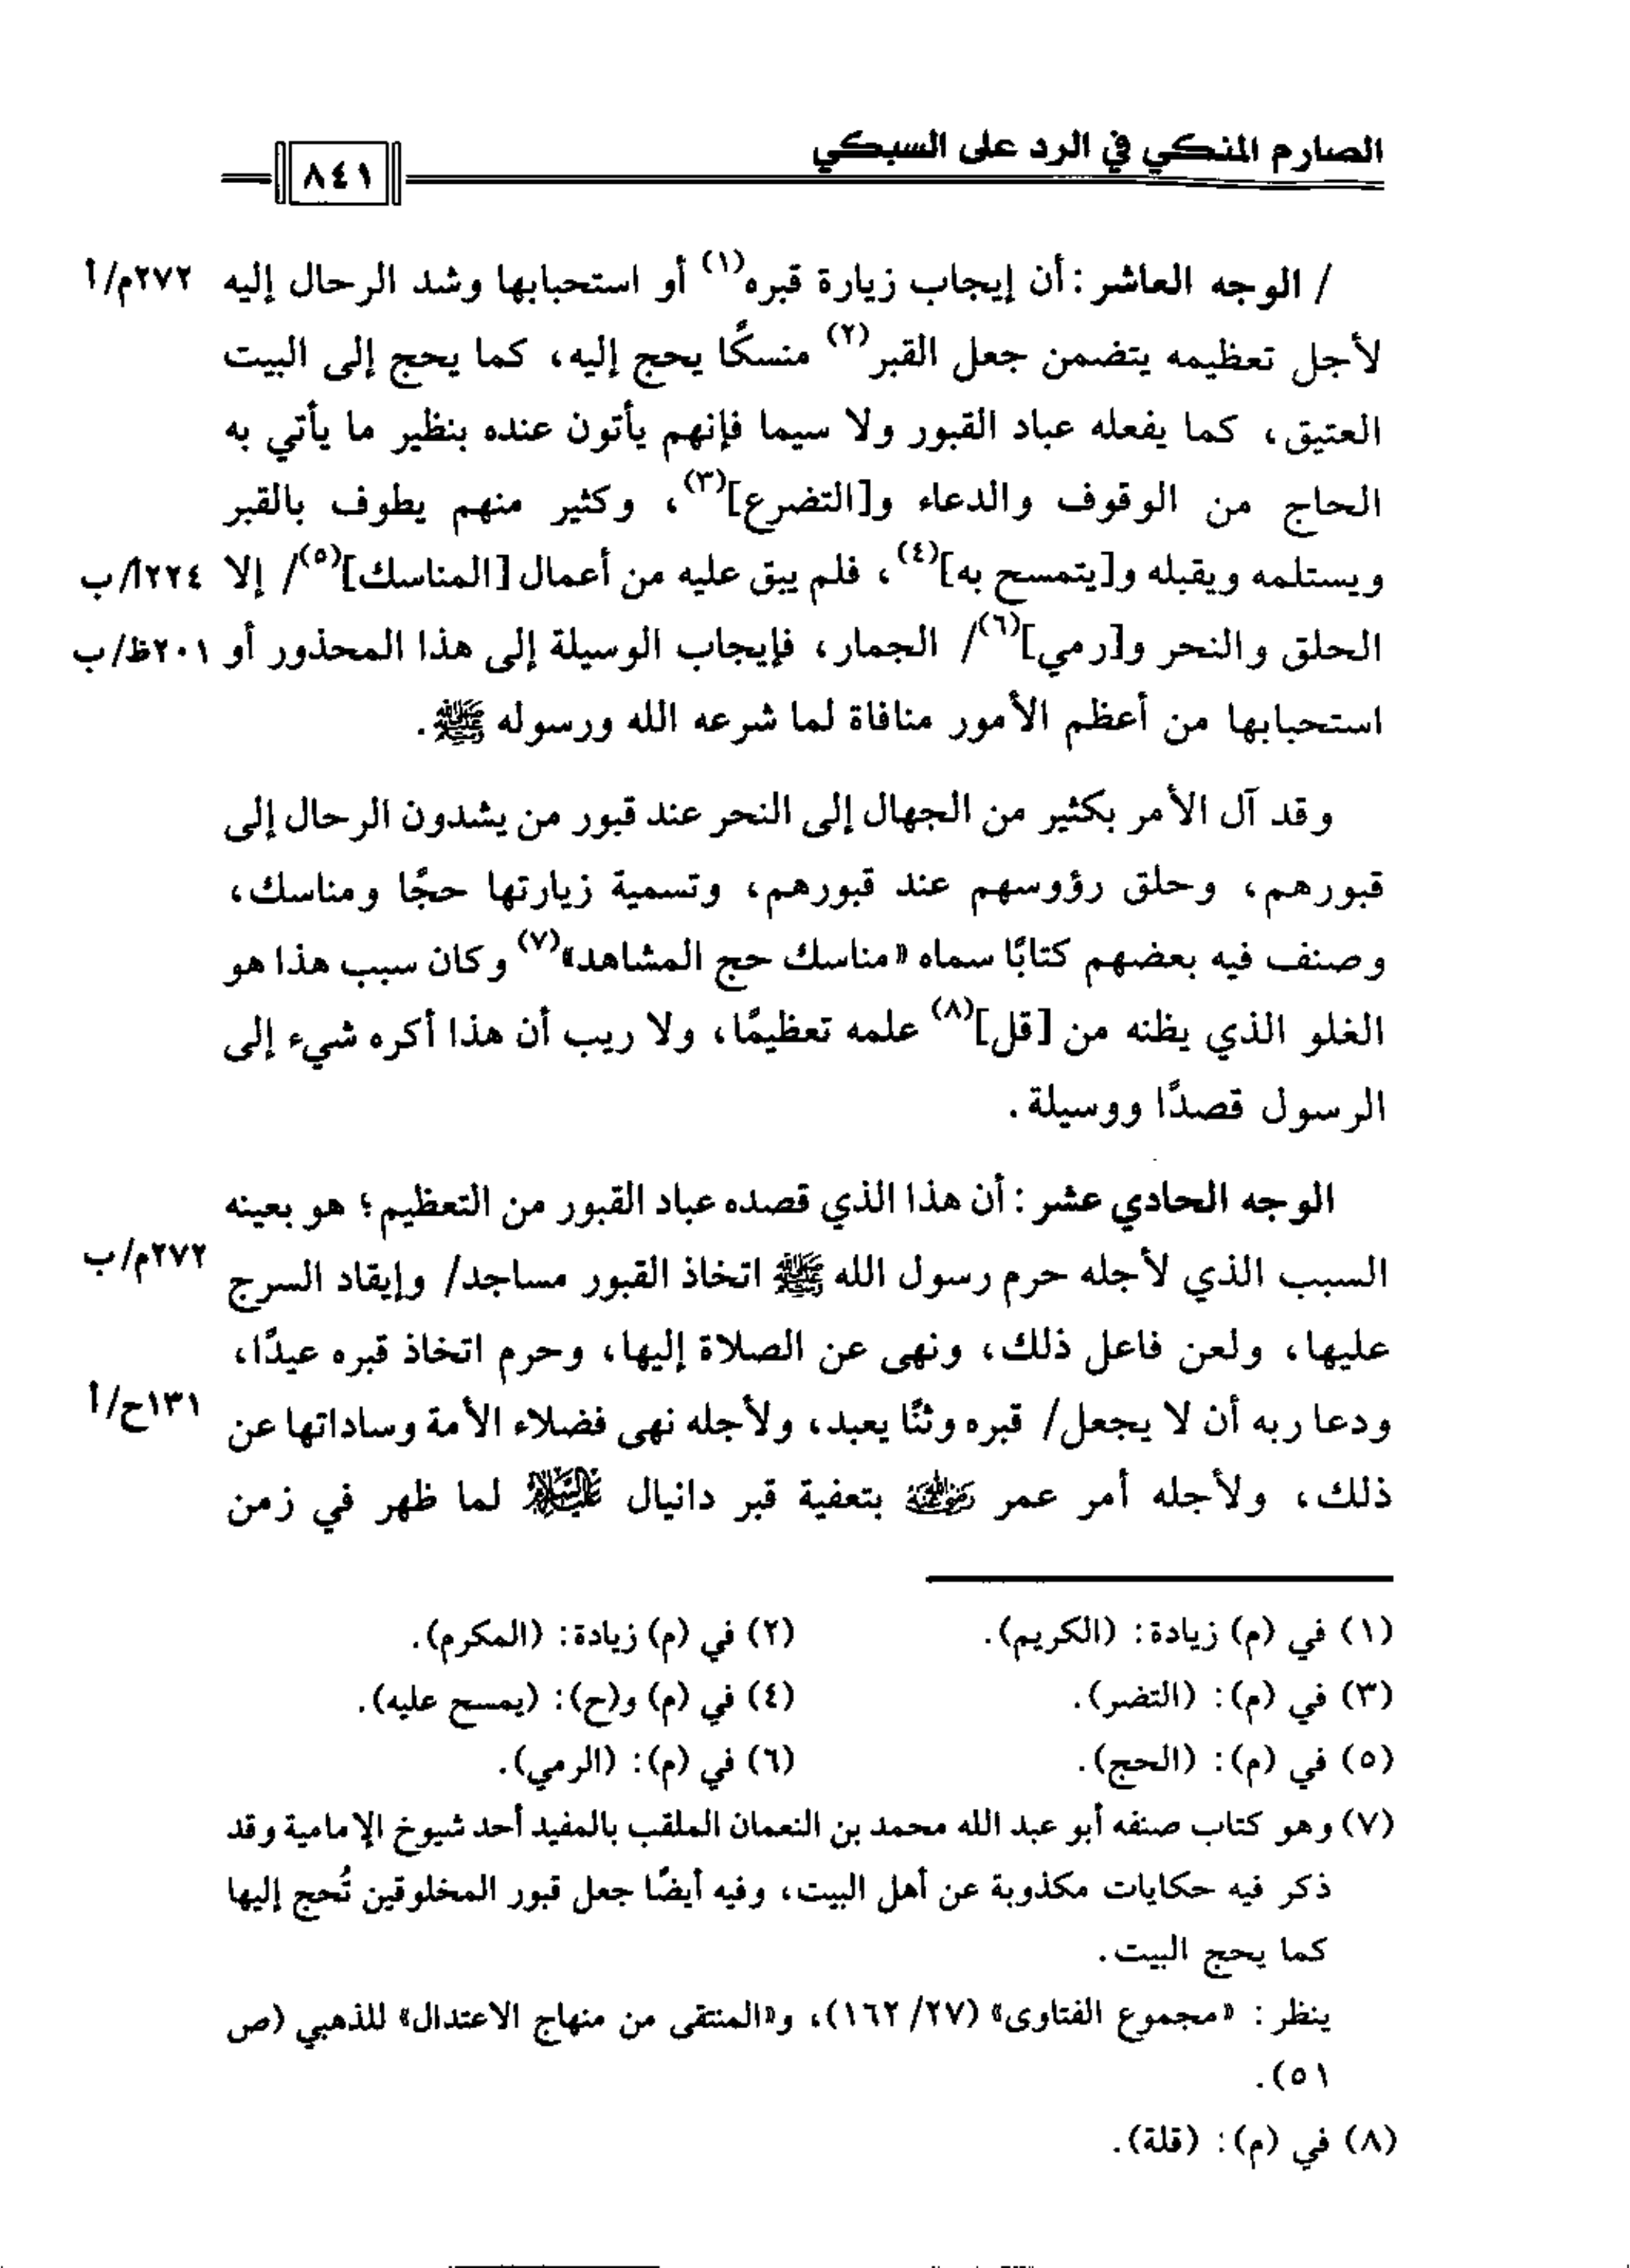 الصارم المنكي في الرد على السبكي
٨٤١
/ الوجه العاشر: أن إيجاب زيارة قبره(١) أو استحبابها وشد الرحال إليه ٢٧٢م/أ
لأجل تعظيمه يتضمن جعل القبر(٢) منسكًا يحج إليه، كما يحج إلى البيت
العتيق، كما يفعله عباد القبور ولا سيما فإنهم يأتون عنده بنظير ما يأتي به
الحاج من الوقوف والدعاء و[التضرع](٣)، وكثير منهم يطوف بالقبر
ويستلمه ويقبله و[يتمسح به](٤)، فلم يبق عليه من أعمال [المناسك](٥)/ إلا ٢٢٤أ/ب
الحلق والنحر و[رمي](٦)/ الجمار، فإيجاب الوسيلة إلى هذا المحذور أو ٢٠١ظ/ب
استحبابها من أعظم الأمور منافاة لما شرعه الله ورسوله ﷺ.
وقد آل الأمر بكثير من الجهال إلى النحر عند قبور من يشدون الرحال إلى
قبورهم، وحلق رؤوسهم عند قبورهم، وتسمية زيارتها حجًا ومناسك،
وصنف فيه بعضهم كتابًا سماه «مناسك حج المشاهد»(٧) وكان سبب هذا هو
الغلو الذي يظنه من [قل](٨) علمه تعظيمًا، ولا ريب أن هذا أكره شيء إلى
الرسول قصدًا ووسيلة.
الوجه الحادي عشر: أن هذا الذي قصده عباد القبور من التعظيم؛ هو بعينه
السبب الذي لأجله حرم رسول الله ﷺ اتخاذ القبور مساجد/ وإيقاد السرج ٢٧٢م/ب
عليها، ولعن فاعل ذلك، ونهى عن الصلاة إليها، وحرم اتخاذ قبره عيدًا،
ودعا ربه أن لا يجعل/ قبره وثنًا يعبد، ولأجله نهى فضلاء الأمة وساداتها عن ١٣١ح/أ
ذلك، ولأجله أمر عمر رضي الله عنه بتعفية قبر دانيال عليه السلام لما ظهر في زمن
(١) في (م) زيادة: (الكريم). (٢) في (م) زيادة: (المكرم).
(٣) في (م): (التضر). (٤) في (م) و(ح): (يمسح عليه).
(٥) في (م): (الحج). (٦) في (م): (الرمي).
(٧) وهو كتاب صنفه أبو عبد الله محمد بن النعمان الملقب بالمفيد أحد شيوخ الإمامية وقد
ذكر فيه حكايات مكذوبة عن أهل البيت، وفيه أيضًا جعل قبور المخلوقين تُحج إليها
كما يحج البيت.
ينظر: «مجموع الفتاوى» (٢٧/ ١٦٢)، و«المنتقى من منهاج الاعتدال» للذهبي (ص
٥١).
(٨) في (م): (قلة).